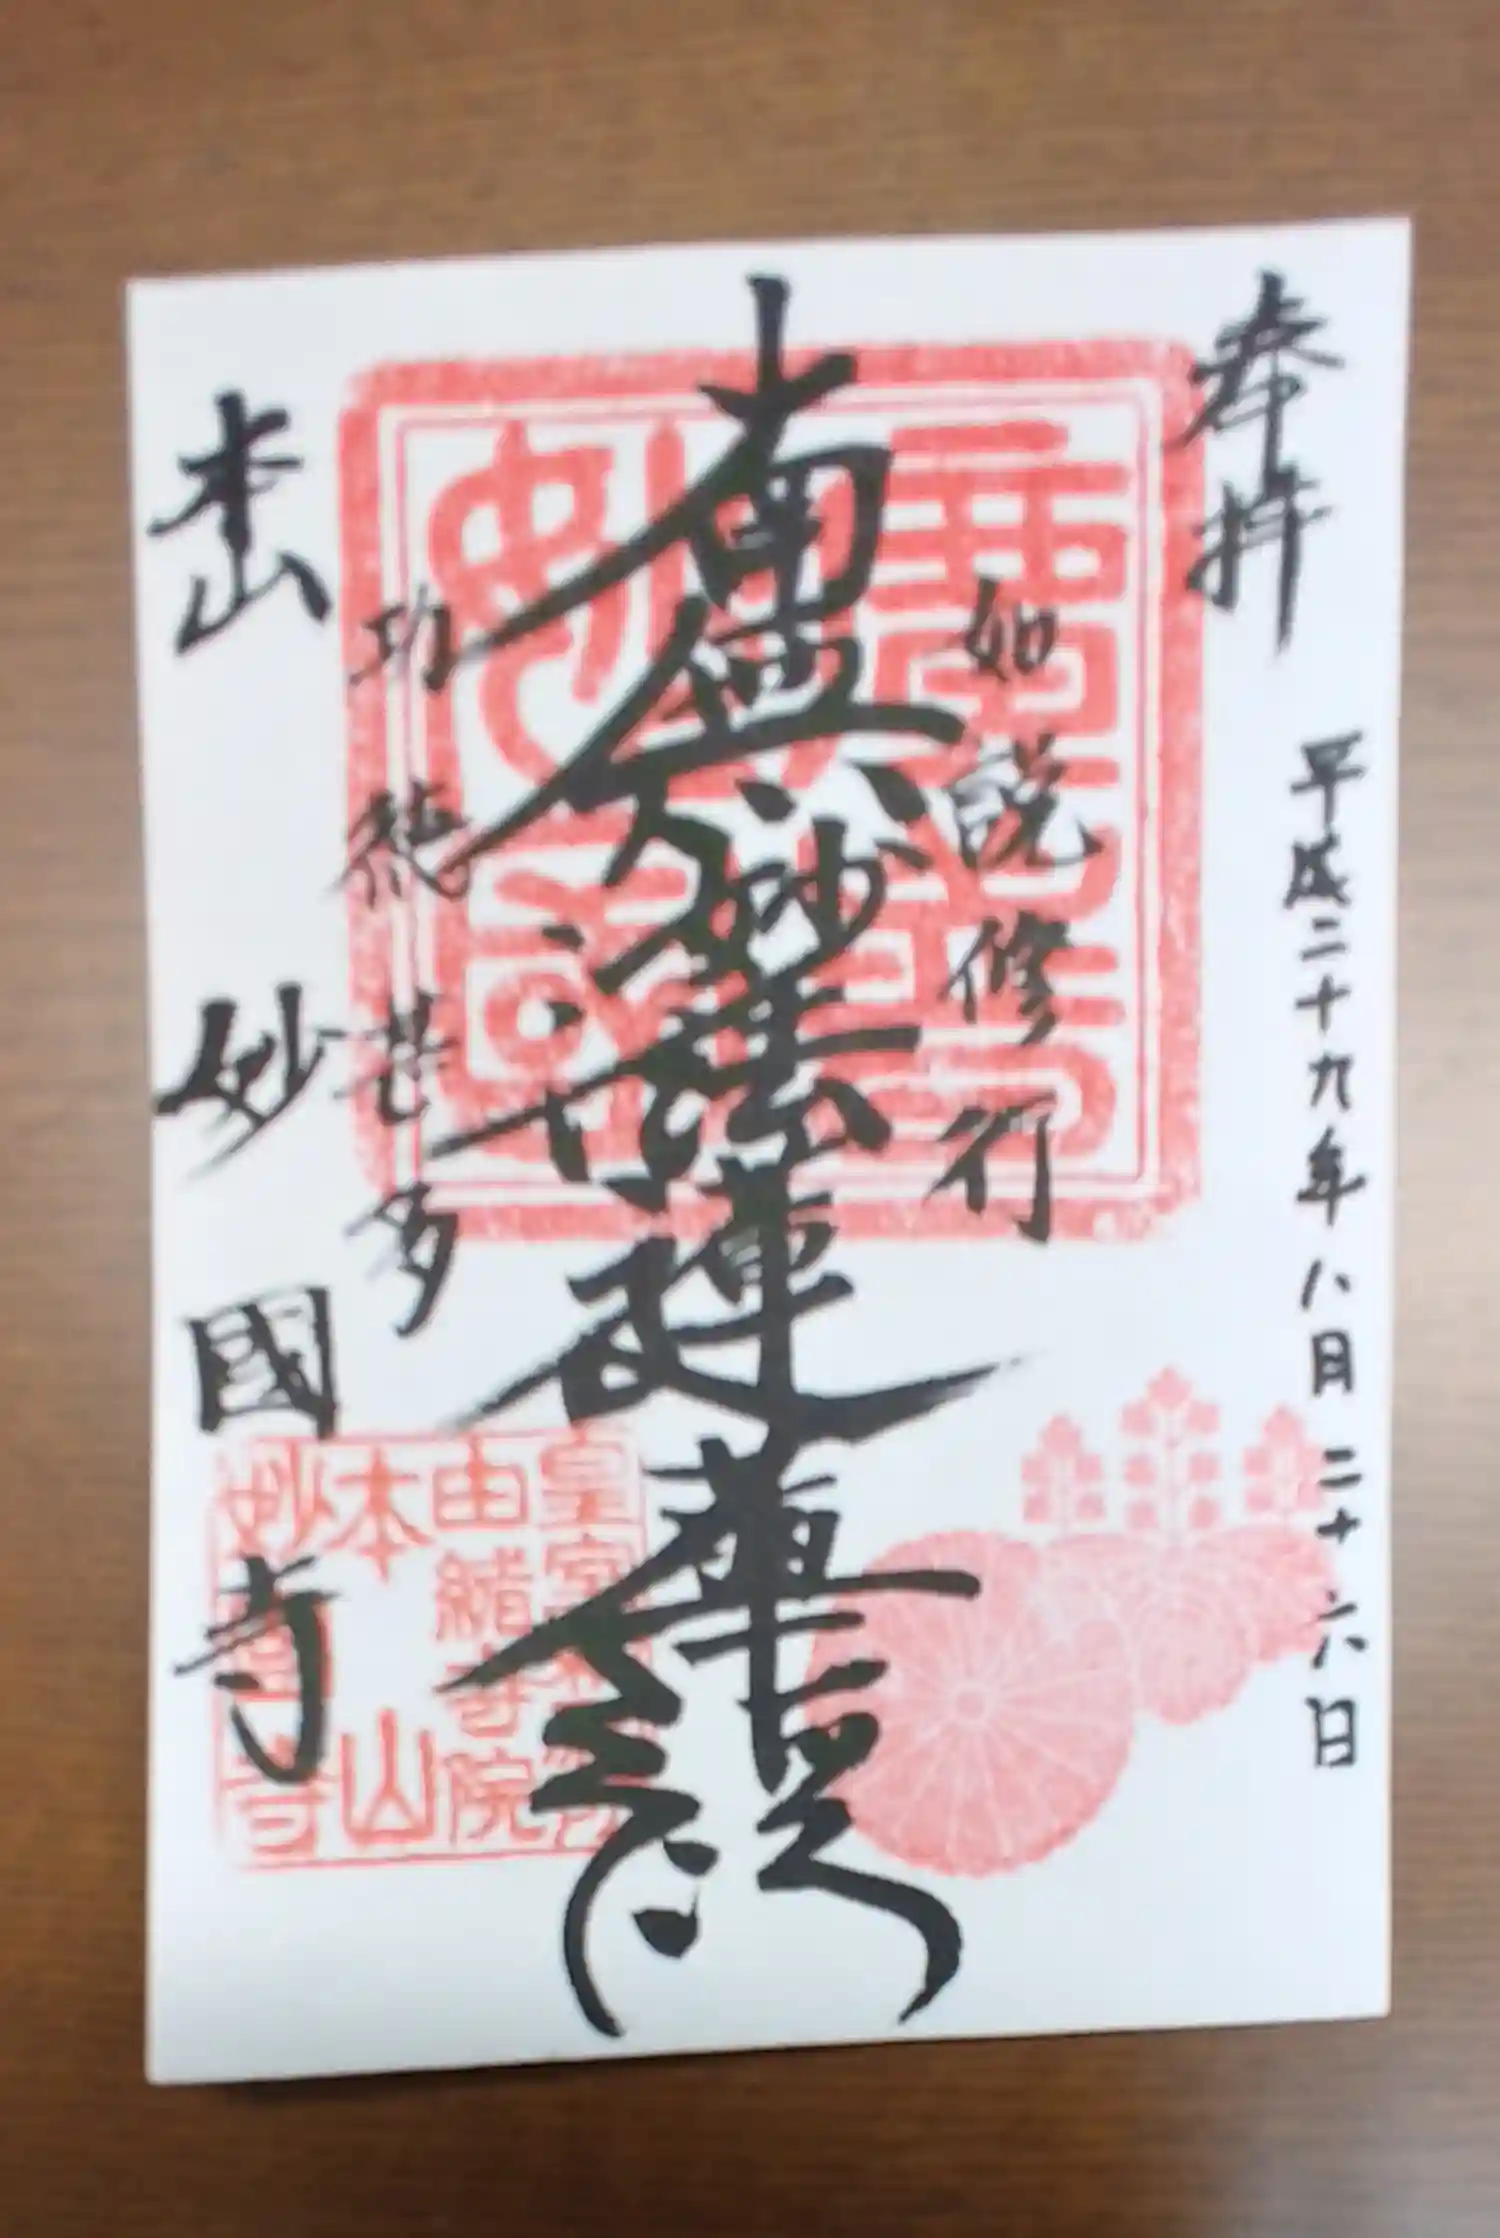 奉拝
平成二十九年八月二十六日
如説修行
南無妙法蓮華経
功徳甚多
本山
妙國寺
皇室
由緒寺院
本山
妙國寺